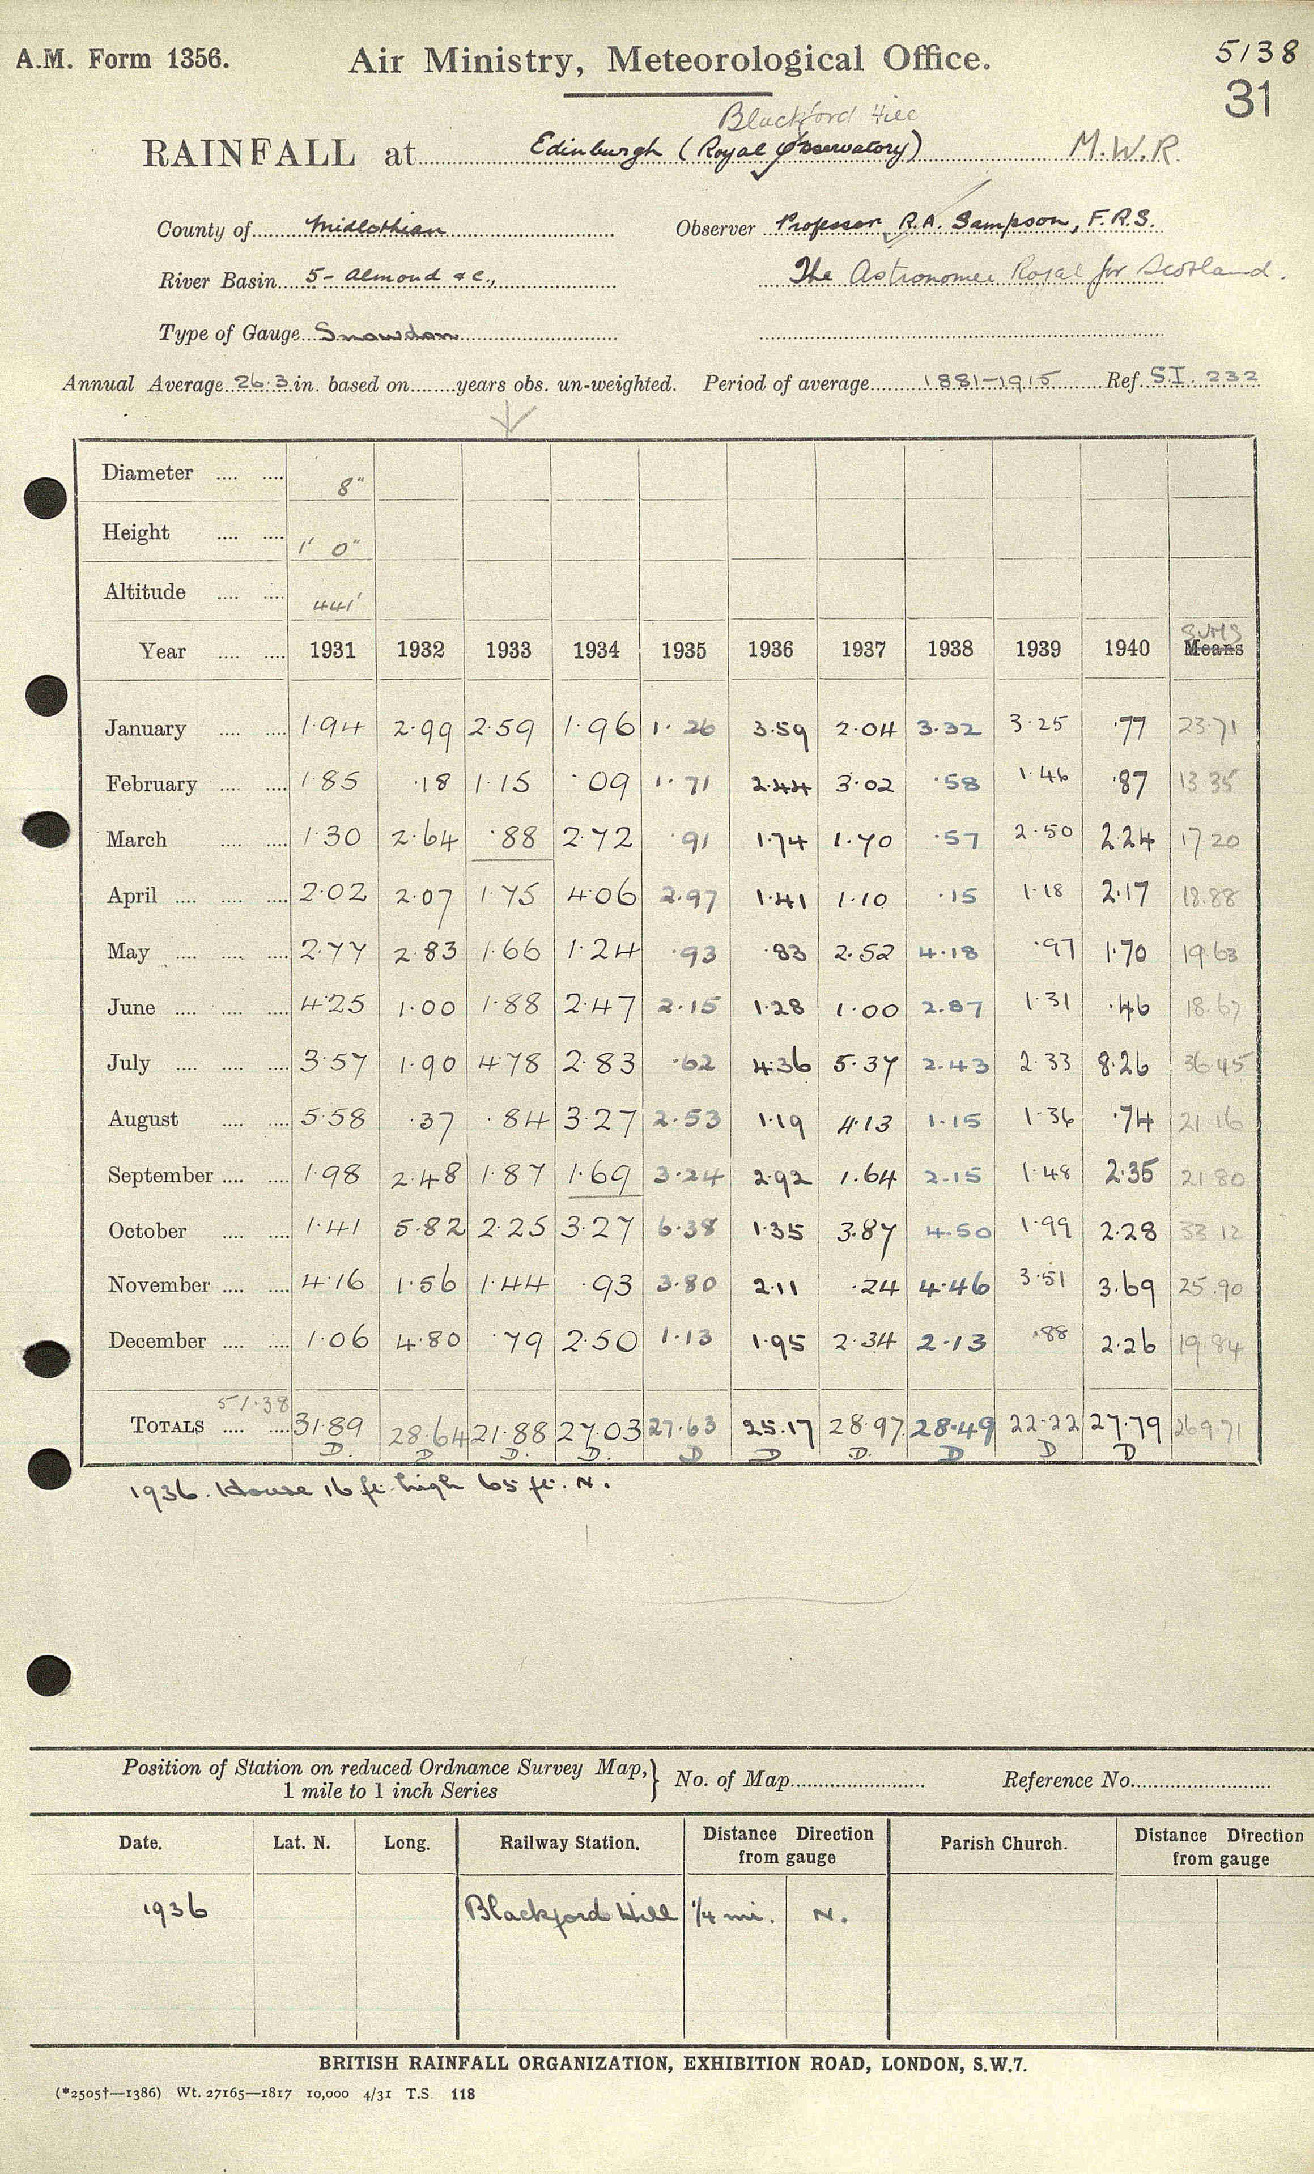 A.M. Form 1356. Air Ministry, Meteorological Office. 5138
31
Blackford Hill
RAINFALL at Edinburgh (Royal Observatory) M.W.R.
County of Midlothian Observer Professor R.A. Sampson, F.R.S.
River Basin 5- Almond &c., The Astronomer Royal for Scotland.
Type of Gauge Snowdon
Annual Average 26.3 in. based on years obs. un-weighted. Period of average 1881-1915 Ref. S.I. 232
Diameter .... .... 8"
Height .... .... 1' 0"
Altitude .... .... 441'
Sums
Year .... .... 1931 1932 1933 1934 1935 1936 1937 1938 1939 1940 Means
January .... .... 1.94 2.99 2.59 1.96 1.26 3.59 2.04 3.32 3.25 .77 23.71
February .... .... 1.85 .18 1.15 .09 1.71 2.44 3.02 .58 1.46 .87 13.35
March .... .... 1.30 2.64 .88 2.72 .91 1.74 1.70 .57 2.50 2.24 17.20
April .... .... .... 2.02 2.07 1.75 4.06 2.97 1.41 1.10 .15 1.18 2.17 18.88
May .... .... .... 2.77 2.83 1.66 1.24 .93 .83 2.52 4.18 .97 1.70 19.63
June .... .... .... 4.25 1.00 1.88 2.47 2.15 1.28 1.00 2.87 1.31 .46 18.67
July .... .... .... 3.57 1.90 4.78 2.83 .62 4.36 5.37 2.43 2.33 8.26 36.45
August .... .... 5.58 .37 .84 3.27 2.53 1.19 4.13 1.15 1.36 .74 21.16
September .... .... 1.98 2.48 1.87 1.69 3.24 2.92 1.64 2.15 1.48 2.35 21.80
October .... .... 1.41 5.82 2.25 3.27 6.38 1.35 3.87 4.50 1.99 2.28 33.12
November .... .... 4.16 1.56 1.44 .93 3.80 2.11 .24 4.46 3.51 3.69 25.90
December .... .... 1.06 4.80 .79 2.50 1.13 1.95 2.34 2.13 .88 2.26 19.84
51.38
TOTALS .... .... 31.89 28.64 21.88 27.03 27.63 25.17 28.97 28.49 22.22 27.79 269.71
D. D D. D. D D D. D D D
1936. House 16 ft. high 65 ft. N.
Position of Station on reduced Ordnance Survey Map,
1 mile to 1 inch Series } No. of Map Reference No.
Date. Lat. N. Long. Railway Station. Distance Direction from gauge Parish Church. Distance Direction from gauge
1936 Blackford Hill 1/4 mi. N.
BRITISH RAINFALL ORGANIZATION, EXHIBITION ROAD, LONDON, S.W.7.
(*2505†—1386) Wt. 27165—1817 10,000 4/31 T.S. 118